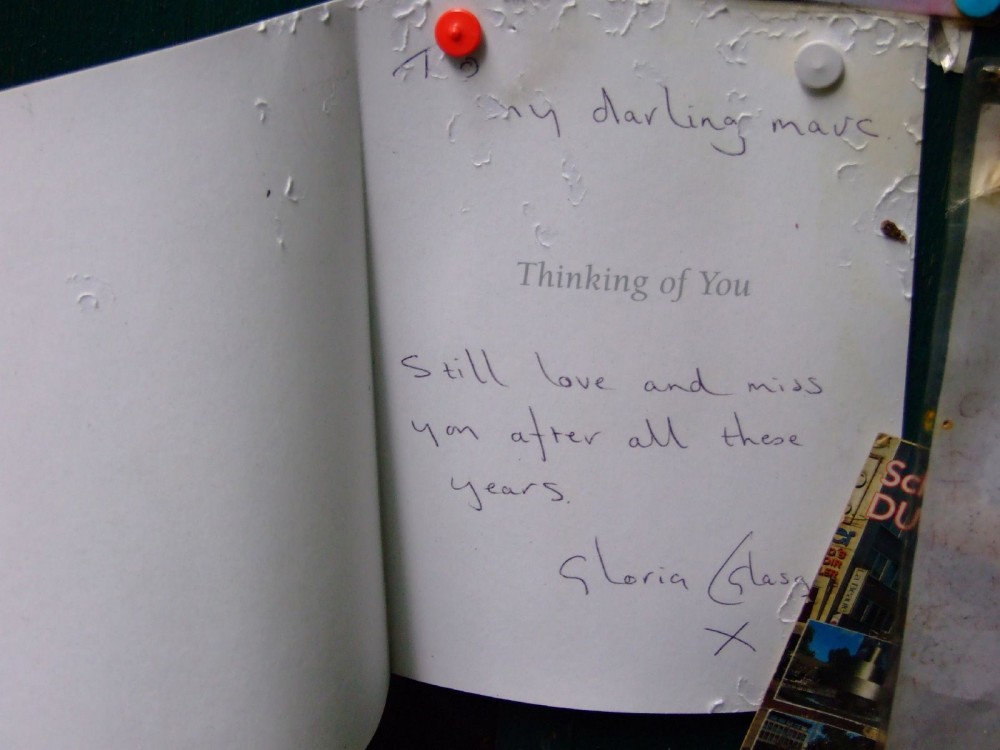 To
my darling marc.
Thinking of You
Still love and miss
you after all these
years.
Gloria (Glasg
X
Sc
DU